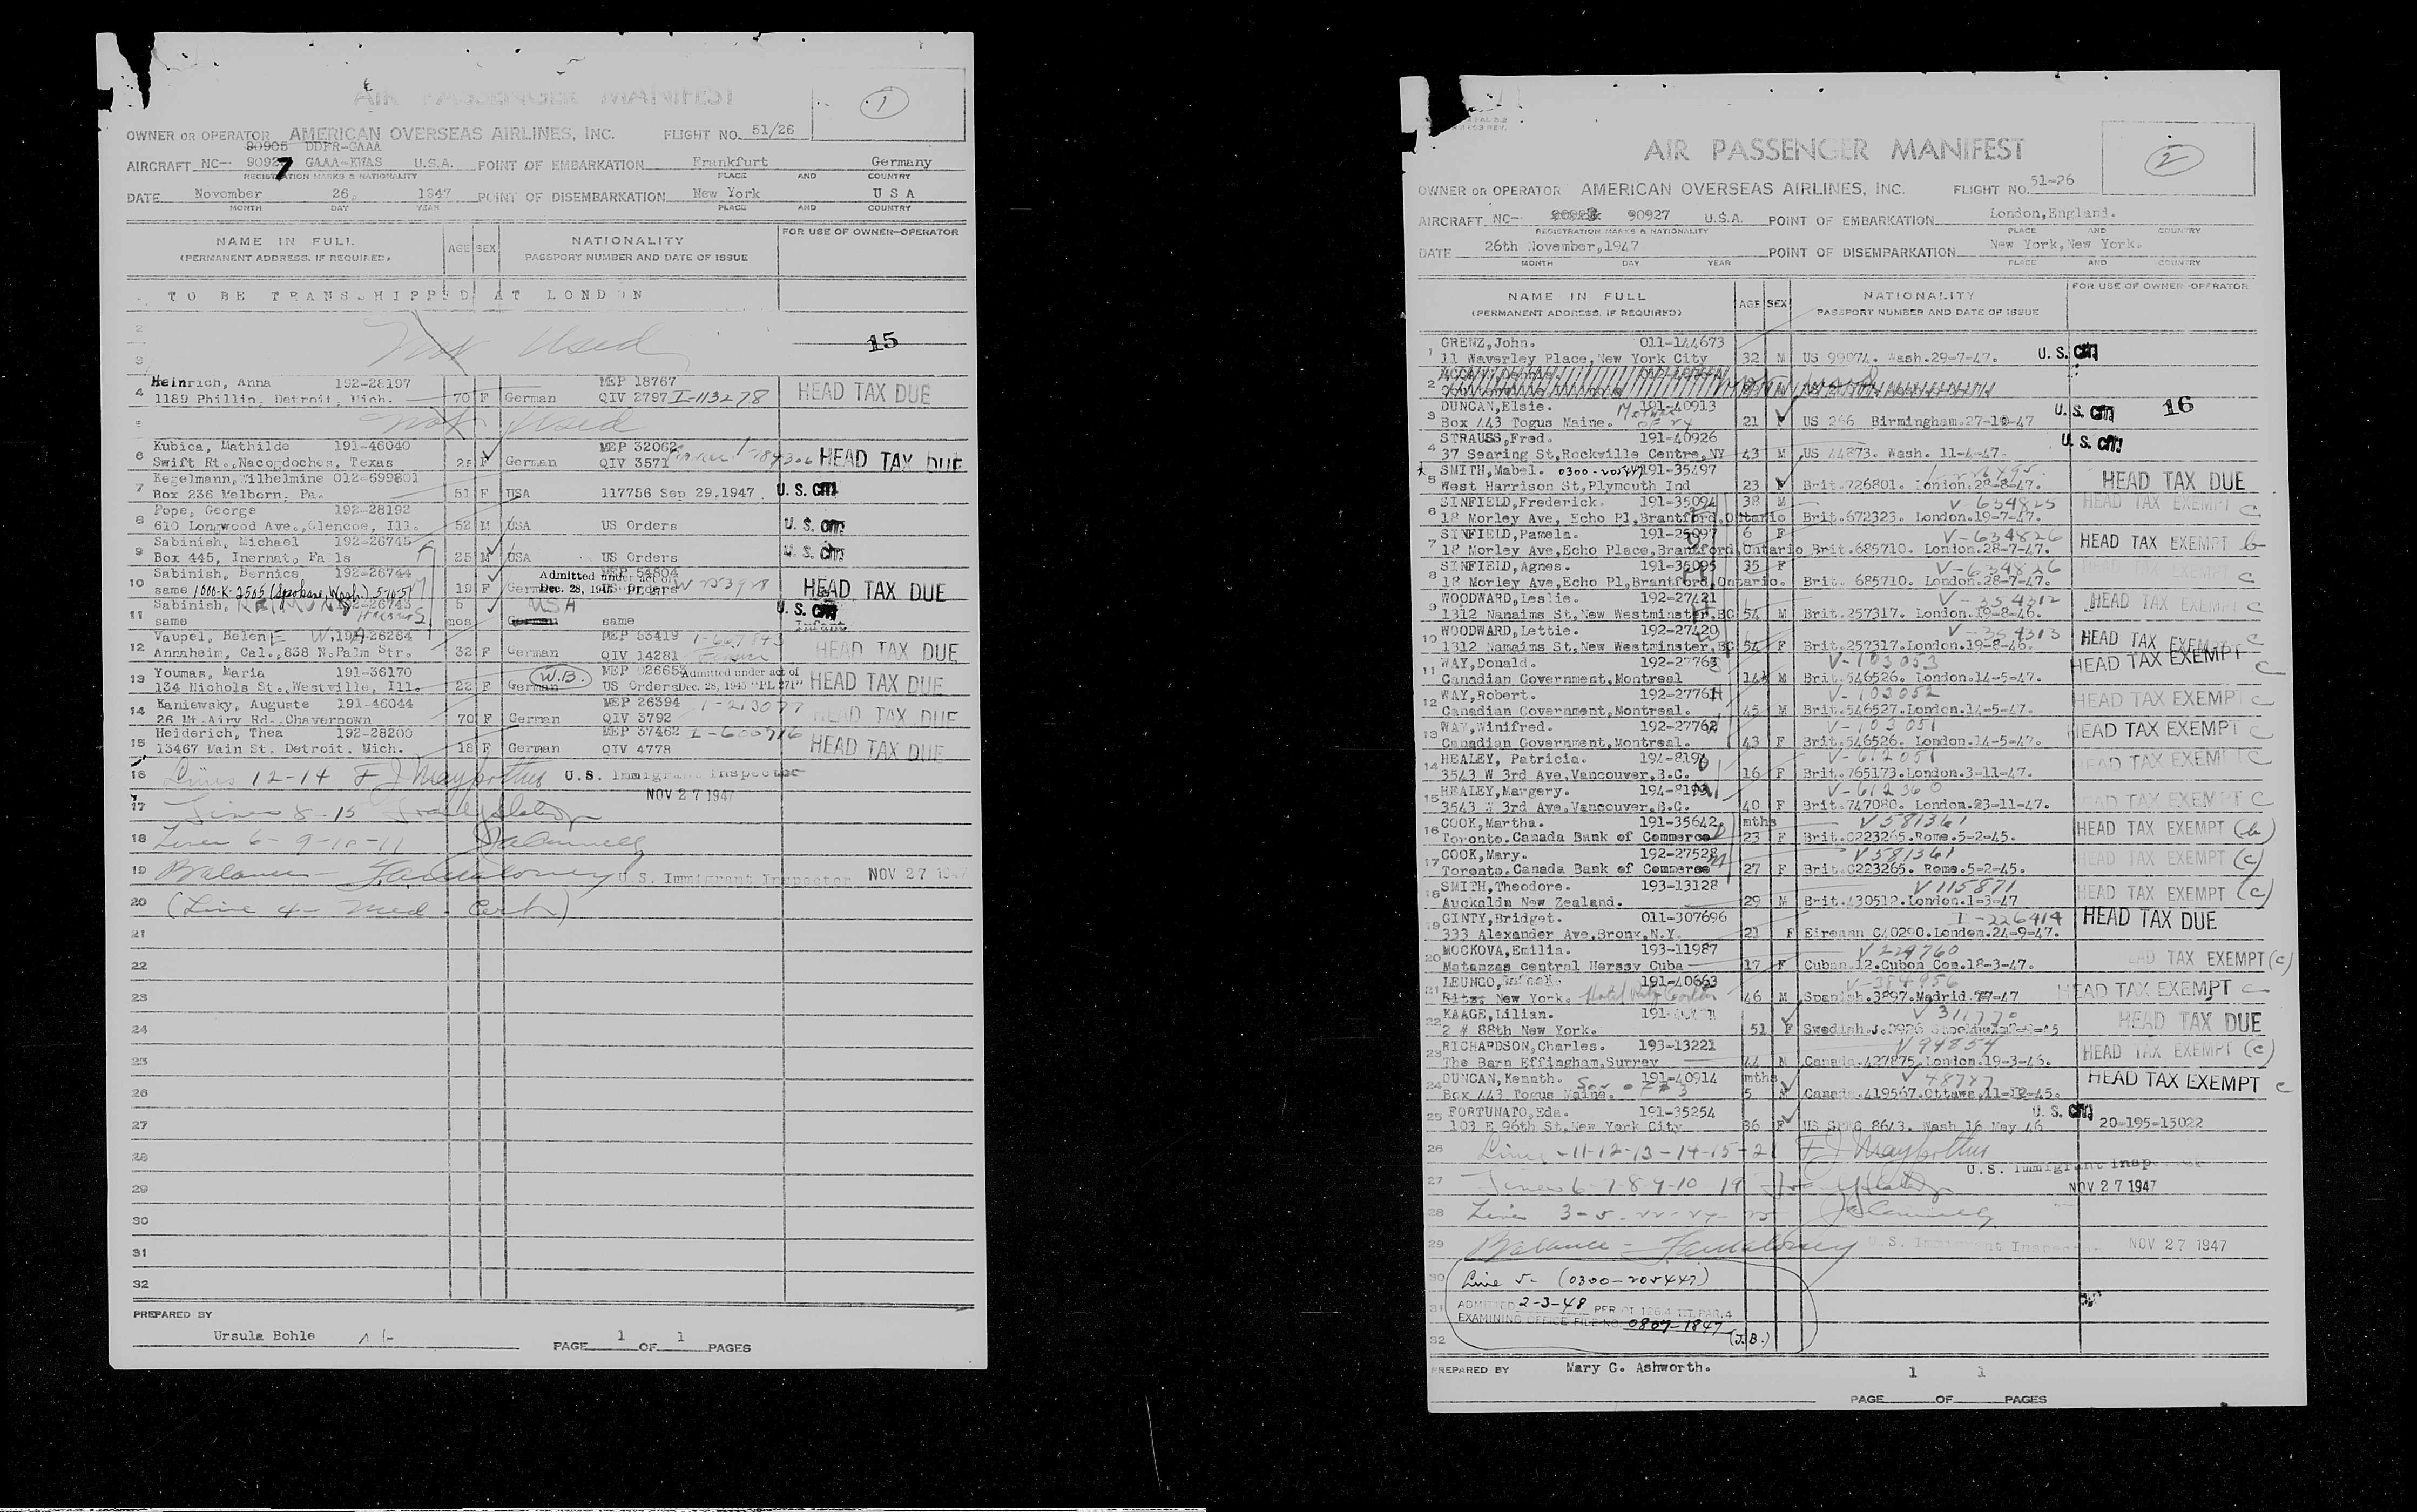 AIR PASSENGER MANIFEST
1
OWNER OR OPERATOR AMERICAN OVERSEAS AIRLINES, INC. FLIGHT NO. 51/26
90905 DDFR-GAAA
AIRCRAFT NC-- 90927 GAAA-KWAS U.S.A. POINT OF EMBARKATION Frankfurt Germany
REGISTRATION MARKS & NATIONALITY PLACE AND COUNTRY
DATE November 26, 1947 POINT OF DISEMBARKATION New York U S A
MONTH DAY YEAR PLACE AND COUNTRY
NAME IN FULL AGE SEX NATIONALITY FOR USE OF OWNER-OPERATOR
(PERMANENT ADDRESS, IF REQUIRED) PASSPORT NUMBER AND DATE OF ISSUE
TO BE TRANSHIPPED AT LONDON
2
Not Used 15
3
Heinrich, Anna 192-28197 MEP 18767
4 1189 Phillip, Detroit, Mich. 70 F German QIV 2797 I-113278 HEAD TAX DUE
Not Used
Kubica, Mathilde 191-46040 MEP 32062
6 Swift Rt., Nacogdoches, Texas F German QIV 3571 HEAD TAX DUE
Kegelmann, Wilhelmine 012-699801
7 Box 236 Melborn, Pa. 51 F USA 117756 Sep 29,1947 U.S. CIT
Pope, George 192-28192
8 610 Longwood Ave., Glencoe, Ill. 52 M USA US Orders U.S. CIT
Sabinish, Michael 192-26745
9 Box 445, Inernat, Falls 25 M USA US Orders U.S. CIT
Sabinish, Bernice 192-26744 MEP 54804
10 same 1000-K-2505 (Spokane, Wash.) 19 F German Admitted under act of Dec. 28, 1945 US Orders HEAD TAX DUE
Sabinish, 192-26743 5 USA U.S. CIT
11 same mos German same Infant
Vaupel, Helen E 192-26264 MEP 53419
12 Annaheim, Cal., 838 N.Palm Str. 32 F German QIV 14281 HEAD TAX DUE
Youmas, Maria 191-36170 W.B. MEP 026653 Admitted under act of
13 134 Nichols St., Westville, Ill. 22 F German US Orders Dec. 28, 1945 "PL 271" HEAD TAX DUE
Kaniewsky, Auguste 191-46044 MEP 26394 I-213077
14 26 Mt Airy Rd. Chaverpown 70 F German QIV 3792 HEAD TAX DUE
Heiderich, Thea 192-28200 MEP 37462 I-600716
15 13467 Main St. Detroit. Mich. 18 F German QIV 4778 HEAD TAX DUE
16 Lines 12-14 U.S. Immigrant Inspector
NOV 27 1947
17 Lines 8-15
18 Lines 6-9-10-11
19 Balance - U.S. Immigrant Inspector NOV 27 1947
20 (Line 4 - Med. Cert)
21
22
23
24
25
26
27
28
29
30
31
32
PREPARED BY
Ursula Bohle
PAGE 1 OF 1 PAGES
AIR PASSENGER MANIFEST
2
OWNER OR OPERATOR AMERICAN OVERSEAS AIRLINES, INC. FLIGHT NO. 51-26
AIRCRAFT NC-- 90927 U.S.A. POINT OF EMBARKATION London,England.
REGISTRATION MARKS & NATIONALITY PLACE AND COUNTRY
DATE 26th November,1947 POINT OF DISEMBARKATION New York,New York.
MONTH DAY YEAR PLACE AND COUNTRY
NAME IN FULL AGE SEX NATIONALITY FOR USE OF OWNER-OPERATOR
(PERMANENT ADDRESS, IF REQUIRED) PASSPORT NUMBER AND DATE OF ISSUE
GRENZ,John. 011-144673
1 11 Waverley Place,New York City 32 M US 99074. Wash.29-7-47. U.S. CIT
2
DUNCAN,Elsie. 191-40913 Mother
3 Box 443 Togus Maine. of 24 21 F US 266 Birmingham.27-10-47 U.S. CIT 16
STRAUSS,Fred. 191-40926
4 37 Searing St,Rockville Centre,NY 43 M US 44873. Wash. 11-4-47. U.S. CIT
SMITH,Mabel. 0300-205447 191-35497
5 West Harrison St,Plymouth Ind 23 F Brit.726801. London.28-8-47. HEAD TAX DUE
SINFIELD,Frederick. 191-35094 38 M V-634825 HEAD TAX EXEMPT C
6 18 Morley Ave, Echo Pl,Brantford,Ontario Brit.672323. London.19-7-47.
SINFIELD,Pamela. 191-25097 6 F V-634826
7 18 Morley Ave,Echo Place,Brantford,Ontario Brit.685710. London.28-7-47. HEAD TAX EXEMPT b
SINFIELD,Agnes. 191-35095 35 F V-634826
8 18 Morley Ave,Echo Pl,Brantford,Ontario. Brit. 685710. London.28-7-47. HEAD TAX EXEMPT C
WOODWARD,Leslie. 192-27421 V-354312
9 1312 Nanaims St,New Westminster,BC 54 M Brit.257317. London.19-8-46. HEAD TAX EXEMPT C
WOODWARD,Lettie. 192-27420 V-354313
10 1312 Namaims St,New Westminster,BC 54 F Brit.257317.London.19-8-46. HEAD TAX EXEMPT C
WAY,Donald. 192-27763 V-103053
11 Canadian Government,Montreal 14 M Brit.546526. London.14-5-47. HEAD TAX EXEMPT C
WAY,Robert. 192-27761 V-103052
12 Canadian Government,Montreal. 45 M Brit.546527.London.14-5-47. HEAD TAX EXEMPT C
WAY,Winifred. 192-27762 V-103051
13 Canadian Government,Montreal. 43 F Brit.546526. London.14-5-47. HEAD TAX EXEMPT C
HEALEY, Patricia. 194-8194 V-612051
14 3543 W 3rd Ave,Vancouver,B.C. 16 F Brit.765173.London.3-11-47. HEAD TAX EXEMPT C
HEALEY,Margery. 194-8193 V-612360
15 3543 W 3rd Ave,Vancouver,B.C. 40 F Brit.747080. London.23-11-47. HEAD TAX EXEMPT C
COOK,Martha. 191-35642 mths V581361
16 Toronto.Canada Bank of Commerce 23 F Brit.C223265.Rome.5-2-45. HEAD TAX EXEMPT (b)
COOK,Mary. 192-27528 V581361
17 Toronto.Canada Bank of Commerce 27 F Brit.C223265. Rome.5-2-45. HEAD TAX EXEMPT (c)
SMITH,Theodore. 193-13128 V115871
18 Auckaldn New Zealand. 29 M Brit.430512.London.1-3-47 HEAD TAX EXEMPT (c)
GINTY,Bridget. 011-307696 I-226414
19 333 Alexander Ave,Bronx,N.Y. 21 F Eirenan C40290.London.24-9-47. HEAD TAX DUE
MOCKOVA,Emilia. 193-11987 V229760
20 Matanzas central Herssy Cuba 17 F Cuban.12.Cubon Con.18-3-47. HEAD TAX EXEMPT (c)
191-40663 V-384956
21 Ritz. New York. 46 M Spanish.3897.Madrid HEAD TAX EXEMPT C
KAAGE,Lilian. V311770
22 2 # 88th New York. 51 F Swedish. HEAD TAX DUE
RICHARDSON,Charles. 193-13221 V94854
23 The Barn Effingham,Surrey 44 M Canada.427875.London.19-3-46. HEAD TAX EXEMPT (c)
DUNCAN,Kennth. 191-40914 mths V48747
24 Box 443 Togus Maine. Son of # 3 5 M Canada.419567.Ottawa.11-12-45. HEAD TAX EXEMPT C
FORTUNATO,Eda. 191-35254 U.S. CIT
25 103 E 96th St,New York City 36 F US SPEC 8643. Wash 16 May 46 20-195-15022
26 Lines -11-12-13-14-15-21
U.S. Immigrant Inspector
27 Lines 6-7-8-9-10 19 NOV 27 1947
28 Lines 3-5-22-24-25
29 Balance - U.S. Immigrant Inspector NOV 27 1947
30 Line 5- (0300-205447)
31 ADMITTED 2-3-48 PER
EXAMINING OFFICE FILE NO. 0807-1847
32 (J.B.)
PREPARED BY Mary C. Ashworth.
PAGE 1 OF 1 PAGES